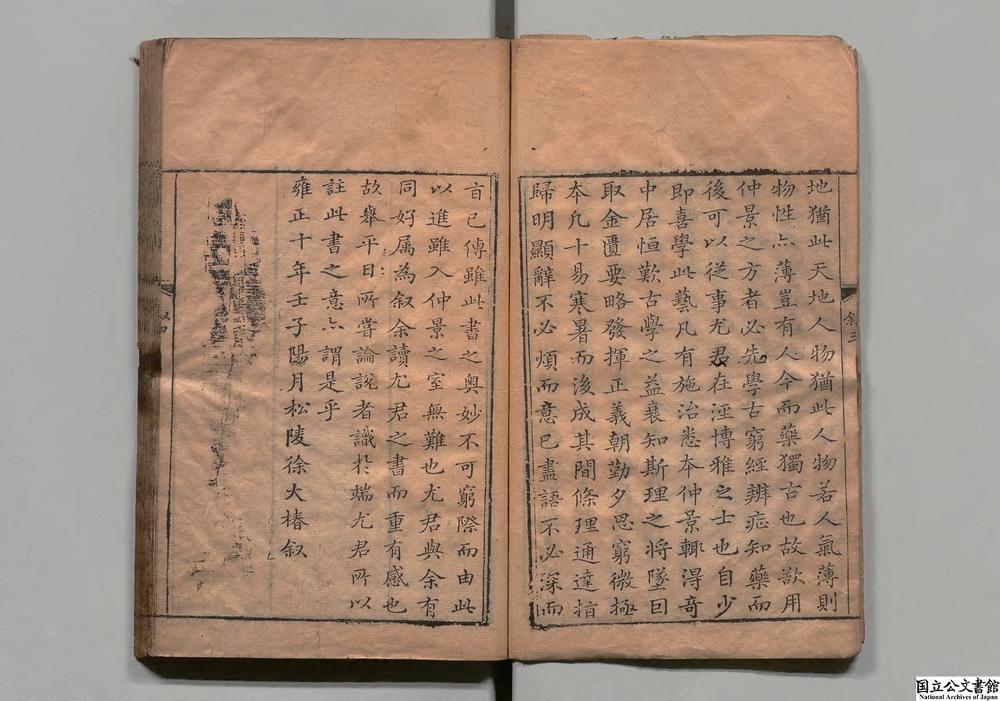 地猶此天地人物猶此人物若人氣薄則
物性亦薄豈有人今而藥獨古也故欲用
仲景之方者必先學古窮經辨症知藥而
後可以從事尤君在涇博雅之士也自少
即喜學此藝凡有施治悉本仲景輒得奇
中居恒歎古學之益衰知斯理之將墜因
取金匱要略發揮正義朝勤夕思窮微極
本凡十易寒暑而後成其間條理通達指
歸明顯辭不必煩而意已盡語不必深而
旨已傳雖此書之奥妙不可窮際而由此
以進雖入仲景之室無難也尤君與余有
同好属為叙余讀尤君之書而重有感也
故舉平日所嘗論說者識於端尤君所以
註此書之意亦謂是乎
雍正十年壬子陽月松陵徐大椿叙
叙三
国立公文書館
National Archives of Japan